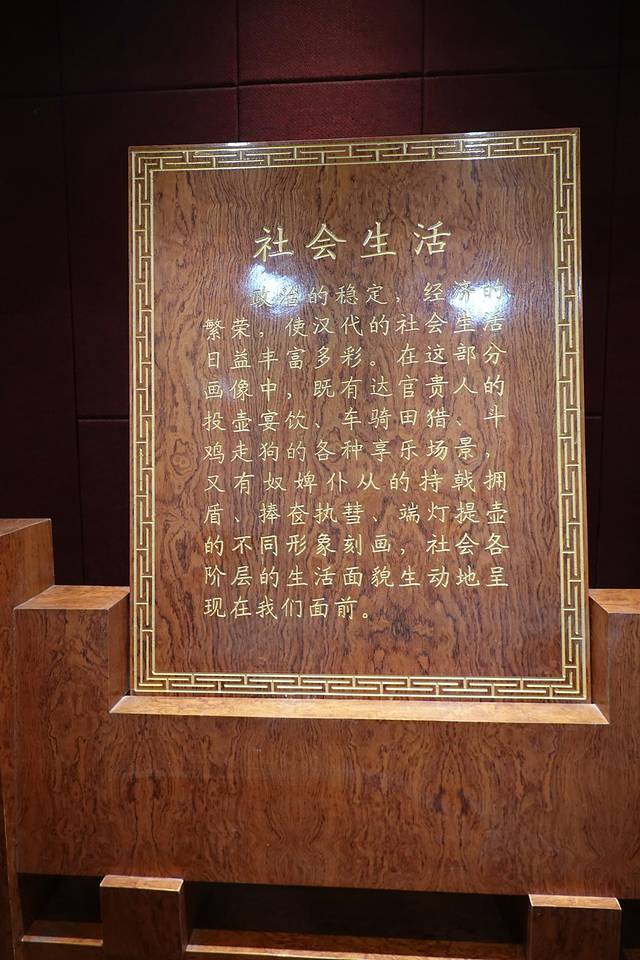 社会生活
政治的稳定，经济的
繁荣，使汉代的社会生活
日益丰富多彩。在这部分
画像中，既有达官贵人的
投壶宴饮、车骑田猎、斗
鸡走狗的各种享乐场景，
又有奴婢仆从的持戟拥
盾、捧奁执彗、端灯提壶
的不同形象刻画，社会各
阶层的生活面貌生动地呈
现在我们面前。